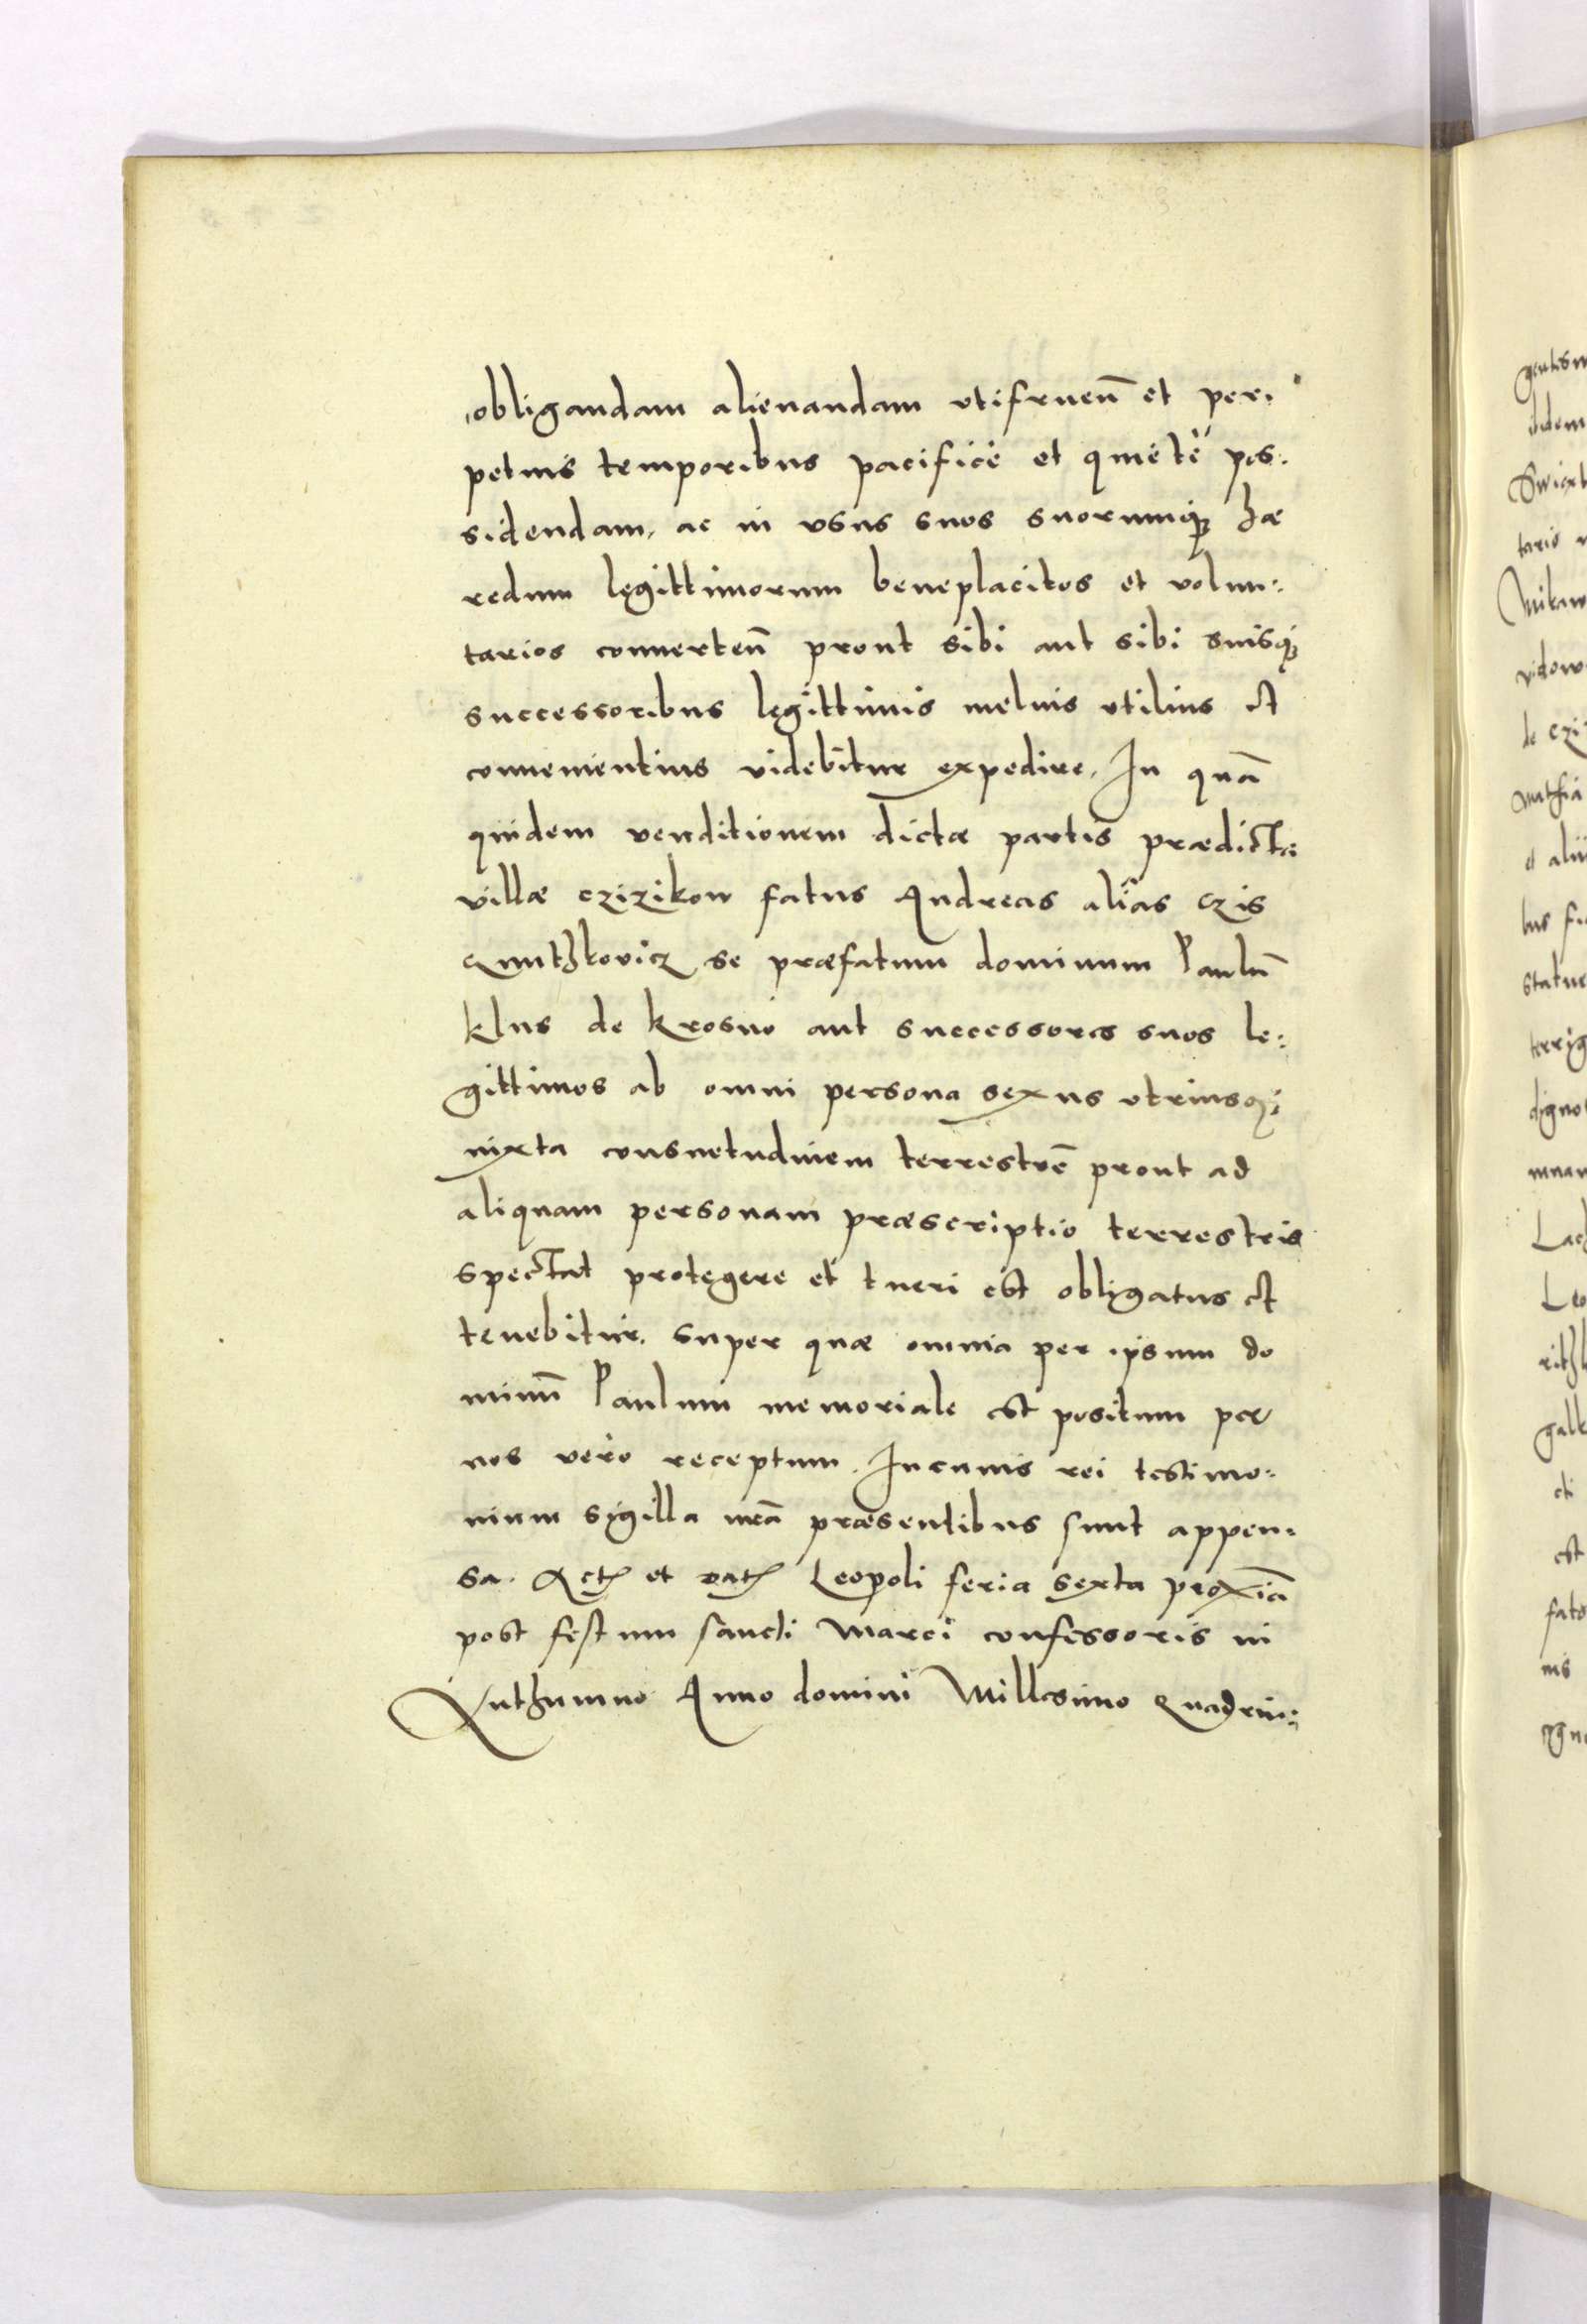 obligandam alienandam utifruen̄ et per:
petuis temporibus pacificè et quietè pos:
sidendam, ac in usus suos suorumq; hæ
redum legittimorum beneplacitos et volun:
tarios converten̄ prout sibi aut sibi suisq;
successoribus legittimis melius utilius et
convenientius videbitur expedire. In quā
quidem venditionem dictæ partis prædictæ
villæ czizikow fatus Andreas aliâs Czis
Qnuthkovicz se præfatum dominum Paulū
klus de krosno aut successores suos le:
gittimos ab omni persona sexus utriusq;
iuxta consuetudinem terrestrē prout ad
aliquam personam præscriptio terrestris
spectat protegere et tueri est obligatus et
tenebitur. Super quæ omnia per ipsum do
minū Paulum memoriale est positum per
nos verò receptum. In cuius rei testimo:
nium sigilla nrā præsentibus sunt appen:
sa. Act et dat Leopoli feria sexta proxiā
post festum sancti Marci confessoris in
Authumno Anno domini Millesimo Quadrin: